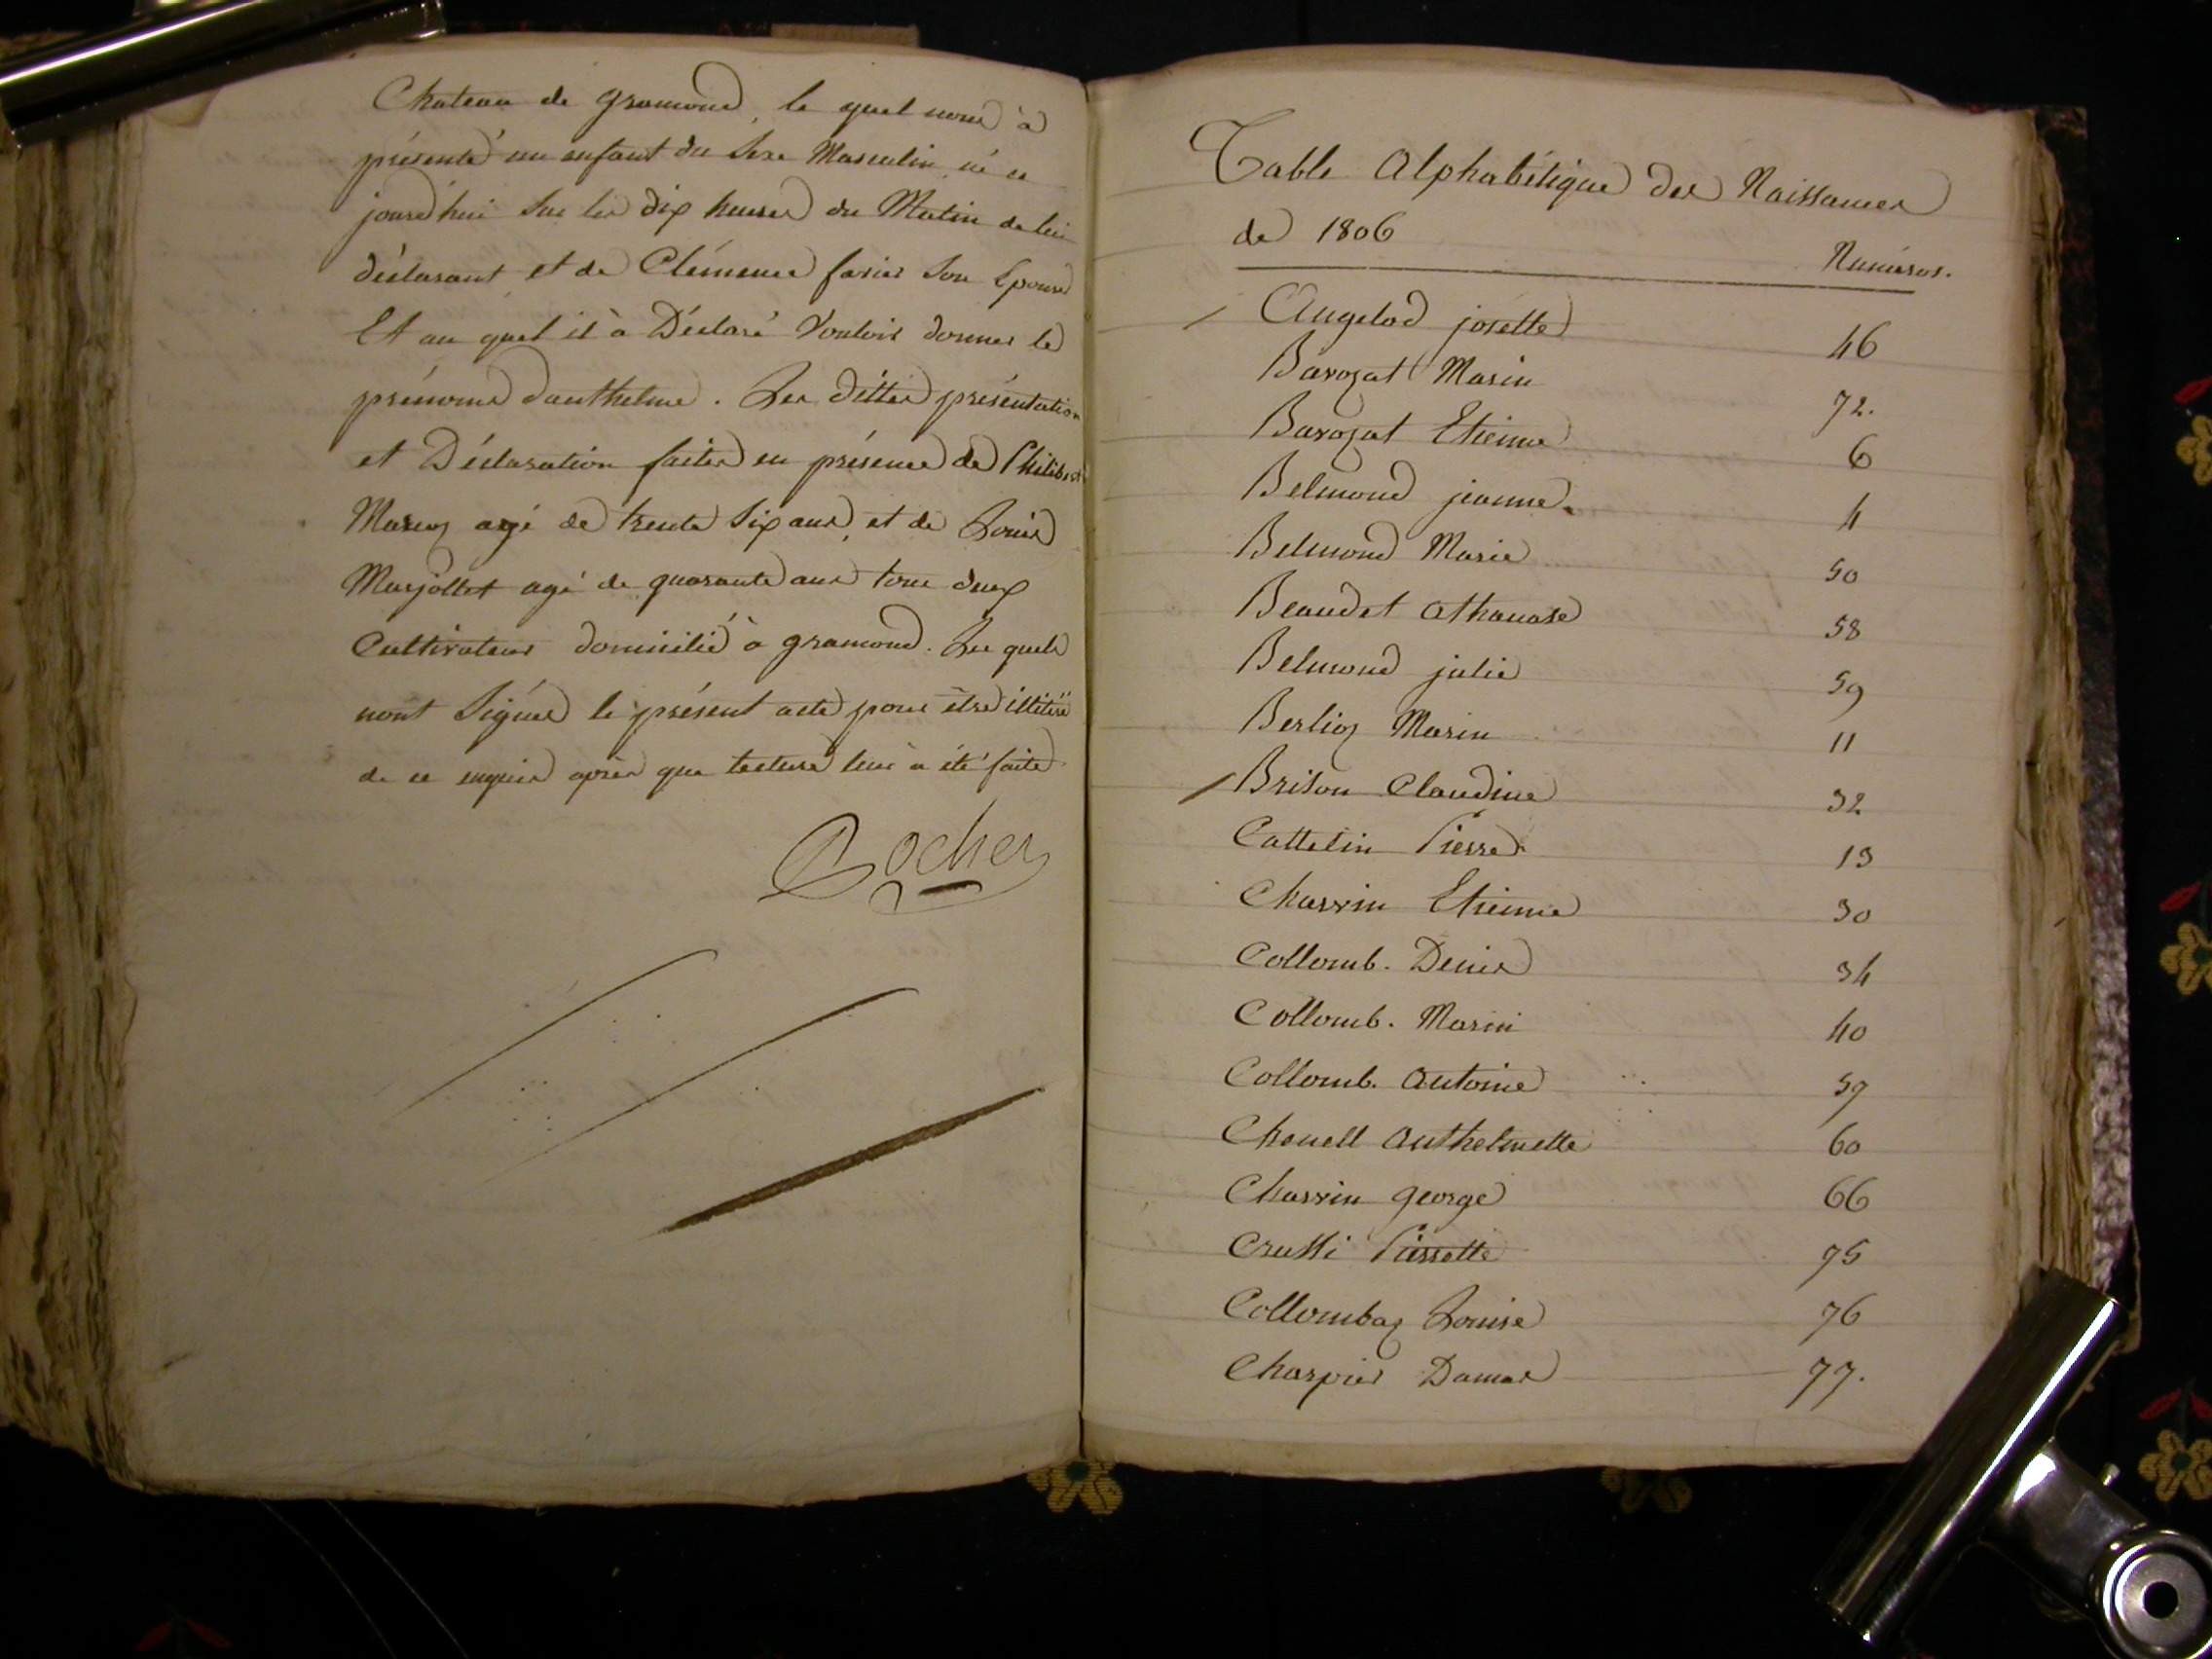 Chateau de gramond, le quel nous à
présenté un enfant du Sexe Masculin, né ce
jourd'hui Sur les dix heures du Matin de lui
déclarant et de Clémence farier Son Epouse
Et au quel il à Déclaré Vouloir donner le
prénoms danthelme. Les dittes présentation
et Déclaration faites en présence de Philibert
agé de trente Six ans, et de Louis
Marjollet agé de quarante ans tous deux
Cultivateurs domicilié à gramond. Les quels
nont Signés le présent acte pour être illitéré
de ce enquis après que lecture leur à été faite
Rocher
Table Alphabétique des Naissances
de 1806
Numéros.
Angelod josette 46
Barozat Marin 72.
Barozat Etienne 6
Belmond jeanne. 4
Belmond Marie 50
Beaudet athanase 58
Belmond julie 59
Berlioz Marin 11
Brison Claudine 32
Cattelin Pierre 13
Charvin Etienne 30
Collomb. Denis 34
Collomb. Marin 40
Collomb. antoine 57
anthelmette 60
Charvin george 66
Crussi Pierrette 75
Collombaz Louise 76
Charpier Damas 77.